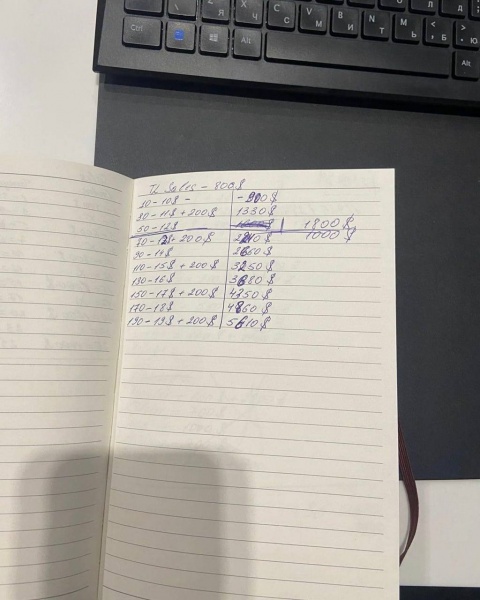 Ctrl
Alt
Alt
TL Sales - 800$
10 - 10$ - - 900$
30 - 11$ + 200$ 1330$
50 - 12$ 1800$
1000$
70 - 13$ + 200$ 2210$
90 - 14$ 2660$
110 - 15$ + 200$ 3250$
130 - 16$ 3680$
150 - 17$ + 200$ 4250$
170 - 18$ 4860$
190 - 19$ + 200$ 5610$